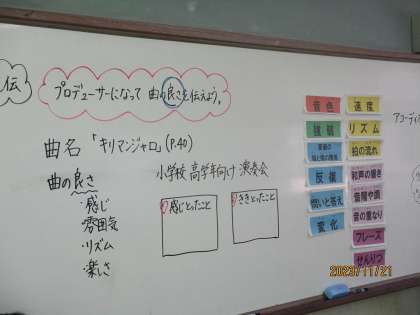 伝
プロデューサーになって 曲の良さを伝えよう。
曲名 「キリマンジャロ」(P.40)
小学校 高学年向け 演奏会
曲の良さ
・感じ
・雰囲気
・リズム
・楽しさ
感じとったこと
ききとったこと
音色
速度
強弱
リズム
拍の流れ
反復
和声の響き
音階や調
問いと答え
音の重なり
変化
フレーズ
せんりつ
アコーディ
2023/11/21